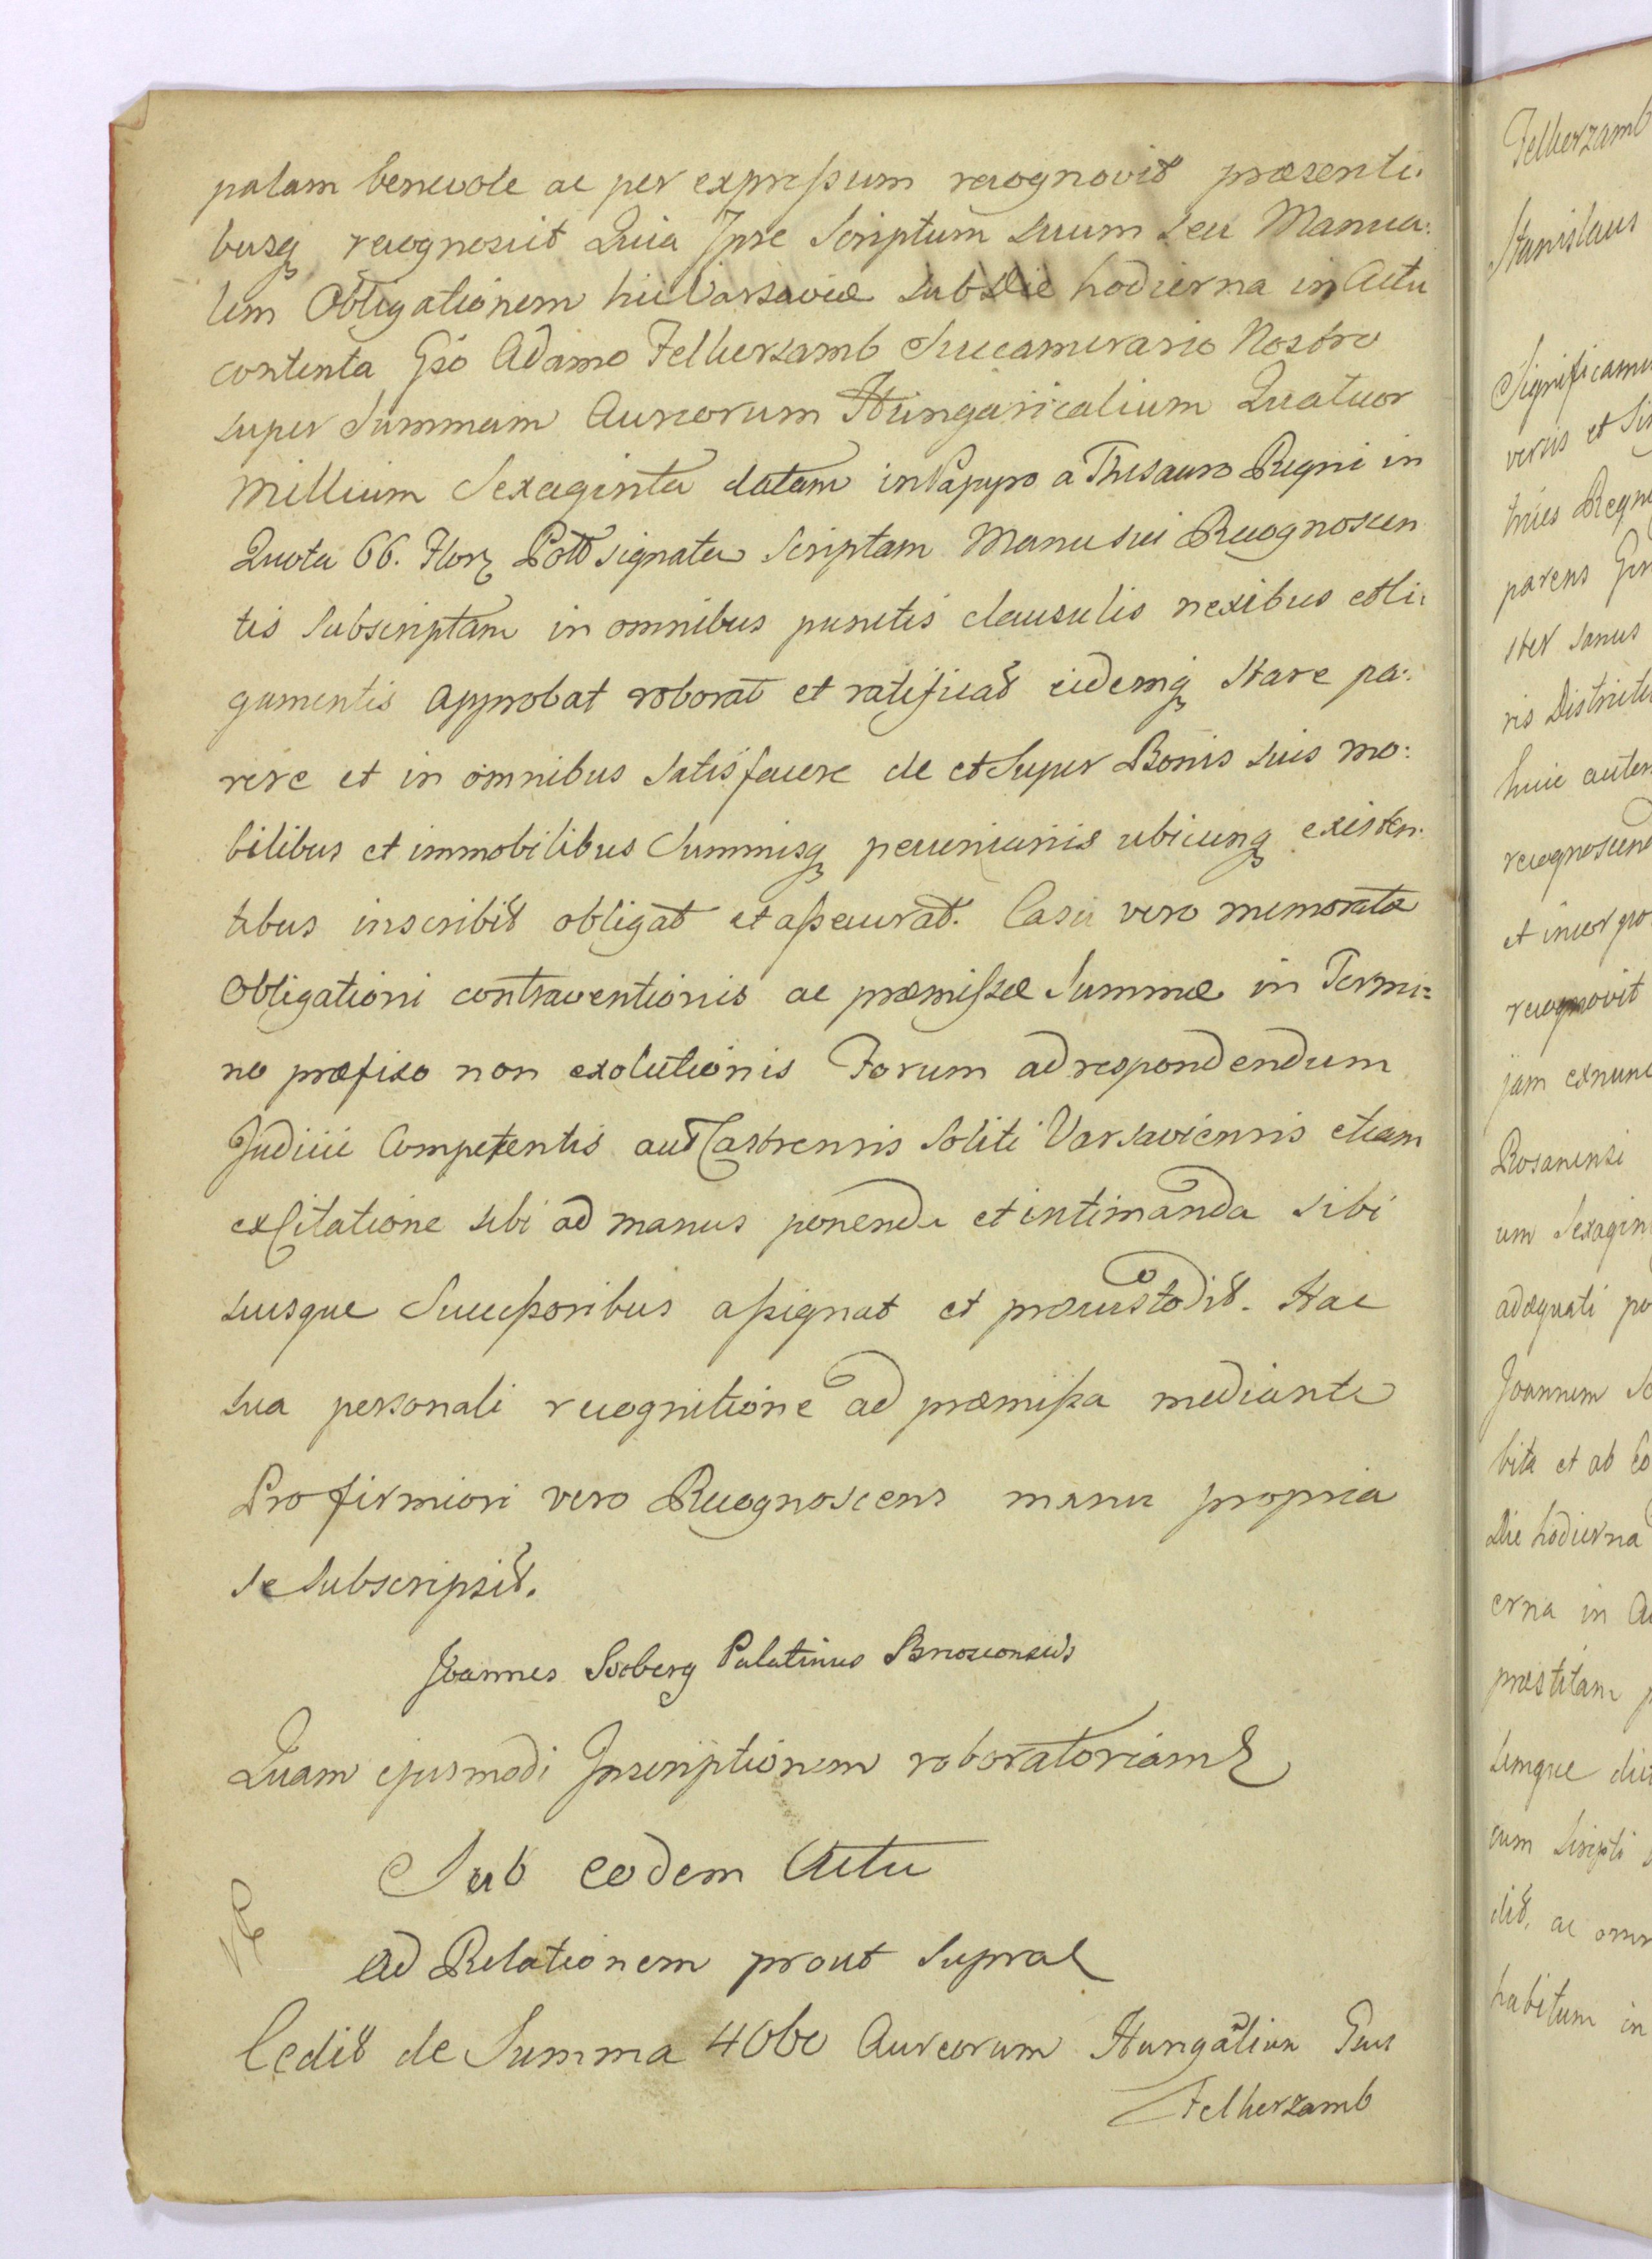 palam benevole ac per expressum recognovit præsenti:
busq recognoscit Quia Ipse Scriptum suum seu Manua:
lem Obligationem hic Varsaviæ sub Die hodierna in Actu
contenta Gso Adamo Felkerzamb Succamerario Nostro
super Summam Aureorum Hungaricalium Quatuor
Millium Sexaginta datam in Papyro a Thesauro Regni in
Quota 66. Flor Poll signata Scriptam Manu sui Recognoscen
tis Subscriptam in omnibus punctis clausulis nexibus et li:
gamentis approbat roborat et ratificat eidemq stare pa:
rere et in omnibus satisfacere de et super Bonis suis mo:
bilibus et immobilibus Summisq pecuniariis ubicunq existen:
tibus inscribit obligat et assecurat. Casu vero memoratæ
Obligationi contraventionis ac præmissæ Summæ in Termi=
no præfixo non exolutionis Forum ad respondendum
Judicii Competentis aut Castrensis Soliti Varsaviensis etiam
ex Citatione sibi ad manus ponenda et intimanda sibi
suisque Successoribus assignat et præcustodit. Hac
sua personali recognitione ad præmissa mediante
Pro firmiori vero Recognoscens manu propria
se subscripsit.
Joannes Szoberg Palatinus Brzesconensis
Quam ejusmodi Inscriptionem roboratoriam
Sub eodem Actu
Ad Relationem prout supra
Cedit de Summa 4060 Aureorum Hungalium Gsus
Felkerzamb
Felkerzamb
Stanislaus
Significamu
veris et Si
triis Regn
parens Gen
ster sanus
ris Districtu
huic autem
recognoscend
et incor pro
recognovit
jam exnunc
Rosanensi
um Sexagin
adæquati po
Joannem Sz
bita et ab Eo
Die hodierna
erna in A
præstitam p
tumque di
cum Scripti
dit, ac omn
habitum in